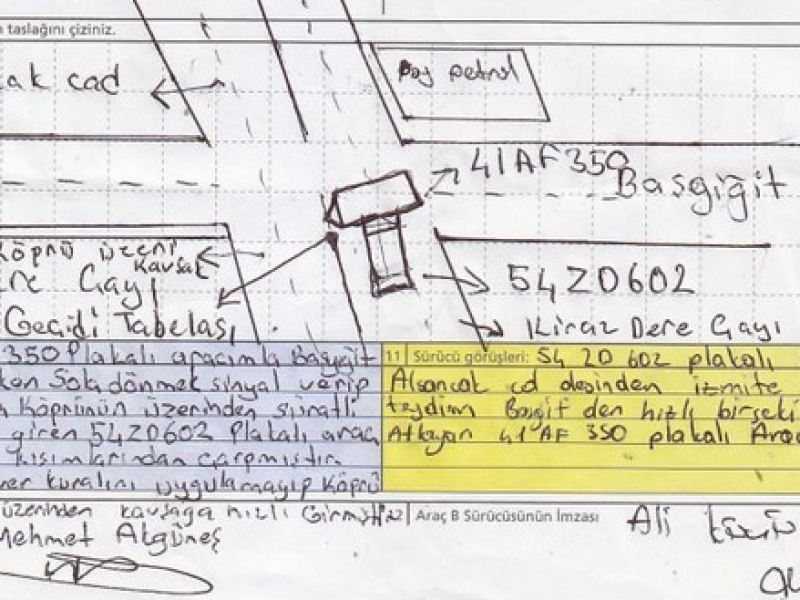 n taslağını çiziniz.
ak cad
Poy petrol
41AF350
Başgiğit
köprü üzeri
Kavşak
ere Çayı
Geçidi Tabelası
54Z0602
Kiraz Dere Çayı
350 Plakalı aracımla Başgiğit
Sola dönmek sinyal verip
Köprünün üzerinden süratli
giren 54Z0602 Plakalı araç
kısımlarından çarpmıştır
kuralını uygulamayıp Köprü
üzerinden kavşağa hızlı Girmiştir
Mehmet Akgüneş
11 Sürücü görüşleri: 54 Z0 602 plakalı
Alsancak cd desinden izmite
Başgit den hızlı birşeki
41 AF 350 plakalı Araç
12 Araç B Sürücüsünün İmzası
Ali